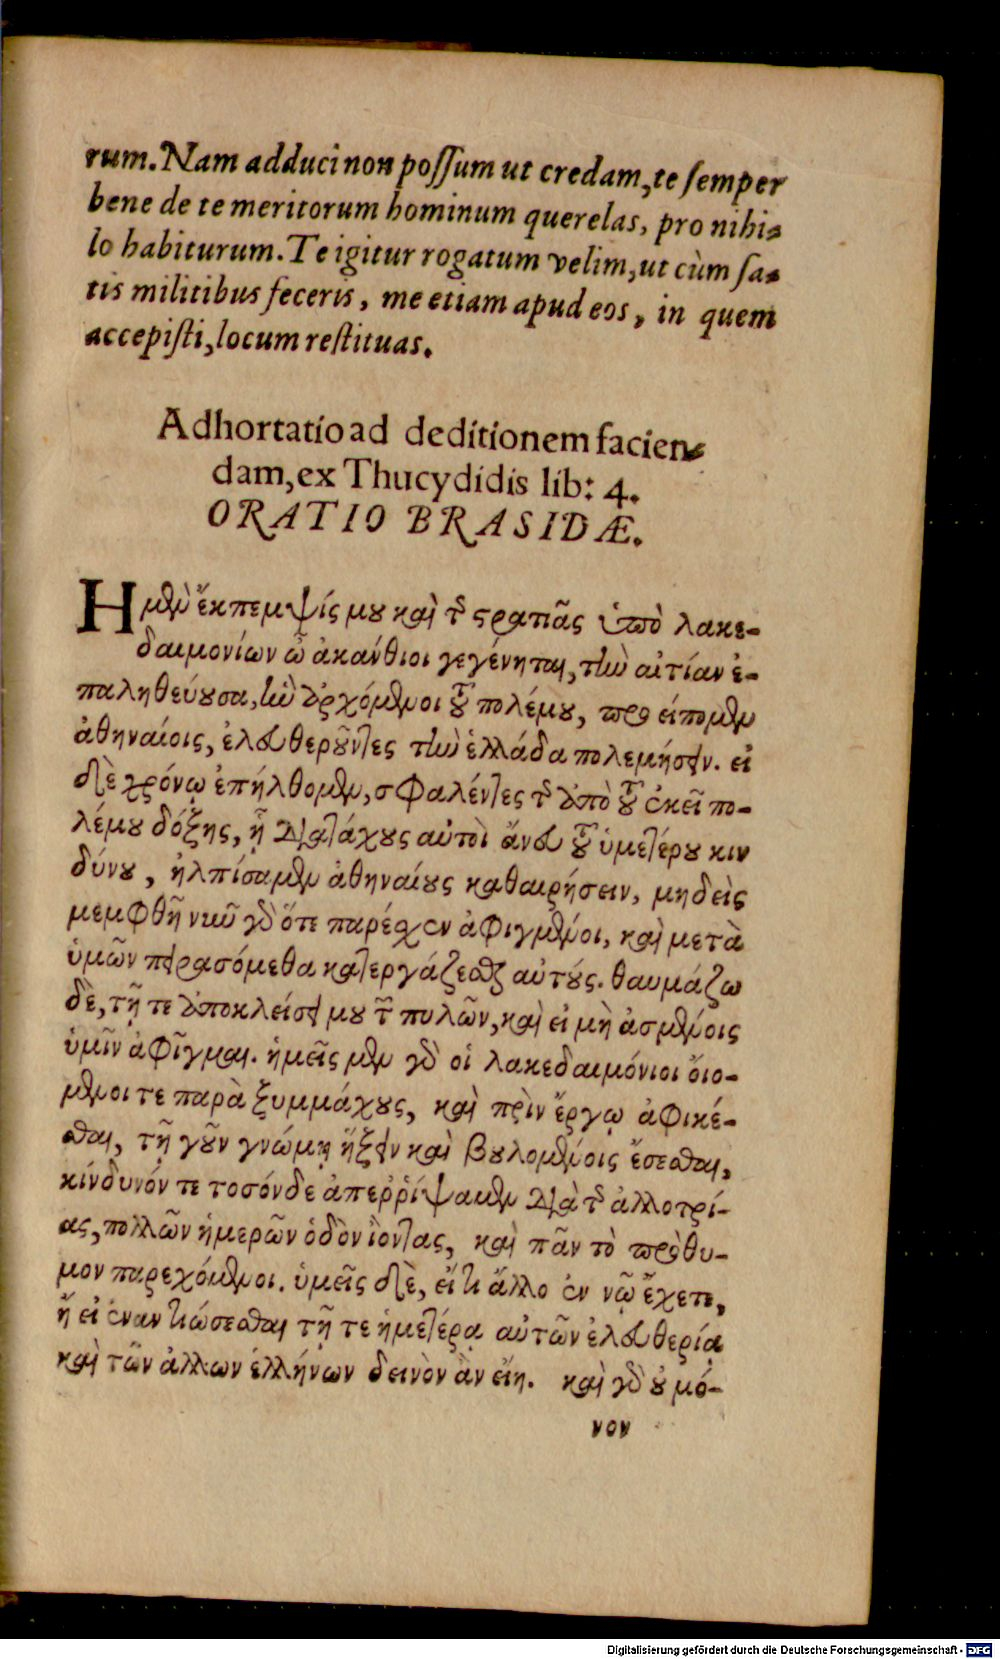 rum. Nam adduci non possum ut credam, te semper
bene de te meritorum hominum querelas, pro nihi-
lo habiturum. Te igitur rogatum velim, ut cùm sa-
tis militibus feceris, me etiam apud eos, in quem
accepisti, locum restituas.
Adhortatio ad deditionem facien-
dam, ex Thucydidis lib: 4.
ORATIO BRASIDÆ.
Η μὲν ἔκπεμψίς μου καὶ τῆς στρατιᾶς ὑπὸ λακε-
δαιμονίων ὦ ἀκάνθιοι γεγένηται, τὴν αἰτίαν ἐ-
παληθεύουσα, ἣν ἀρχόμενοι τοῦ πολέμου, προείπομεν
ἀθηναίοις, ἐλευθεροῦντες τὴν ἑλλάδα πολεμήσειν. εἰ
δὲ χρόνῳ ἐπήλθομεν, σφαλέντες τῆς ἀπὸ τοῦ ἐκεῖ πο-
λέμου δόξης, ᾗ διὰ τάχους αὐτοὶ ἄνευ τοῦ ὑμετέρου κιν
δύνου, ἠλπίσαμεν ἀθηναίους καθαιρήσειν, μηδεὶς
μεμφθῇ νῦν γὰρ ὅτε παρέσχεν ἀφιγμένοι, καὶ μετὰ
ὑμῶν πειρασόμεθα κατεργάζεσθαι αὐτούς. θαυμάζω
δὲ, τῇ τε ἀποκλείσει μου τῶν πυλῶν, καὶ εἰ μὴ ἀσμένοις
ὑμῖν ἀφῖγμαι. ἡμεῖς μὲν γὰρ οἱ λακεδαιμόνιοι οἰό-
μενοι τε παρὰ ξυμμάχους, καὶ πρὶν ἔργῳ ἀφικέ-
σθαι, τῇ γοῦν γνώμῃ ἥξειν καὶ βουλομένοις ἔσεσθαι,
κίνδυνόν τε τοσόνδε ἀπεῤῥίψαμεν διὰ τῆς ἀλλοτρί-
ας, πολλῶν ἡμερῶν ὁδὸν ἰόντας, καὶ πᾶν τὸ πρόθυ-
μον παρεχόμενοι. ὑμεῖς δὲ, εἴ τι ἄλλο ἐν νῷ ἔχετε,
ἢ εἰ ἐναντιώσεσθαι τῇ τε ἡμετέρᾳ αὐτῶν ἐλευθερίᾳ
καὶ τῶν ἄλλων ἑλλήνων δεινὸν ἂν εἴη. καὶ γὰρ οὐ μό-
νον
Digitalisierung gefördert durch die Deutsche Forschungsgemeinschaft - DFG